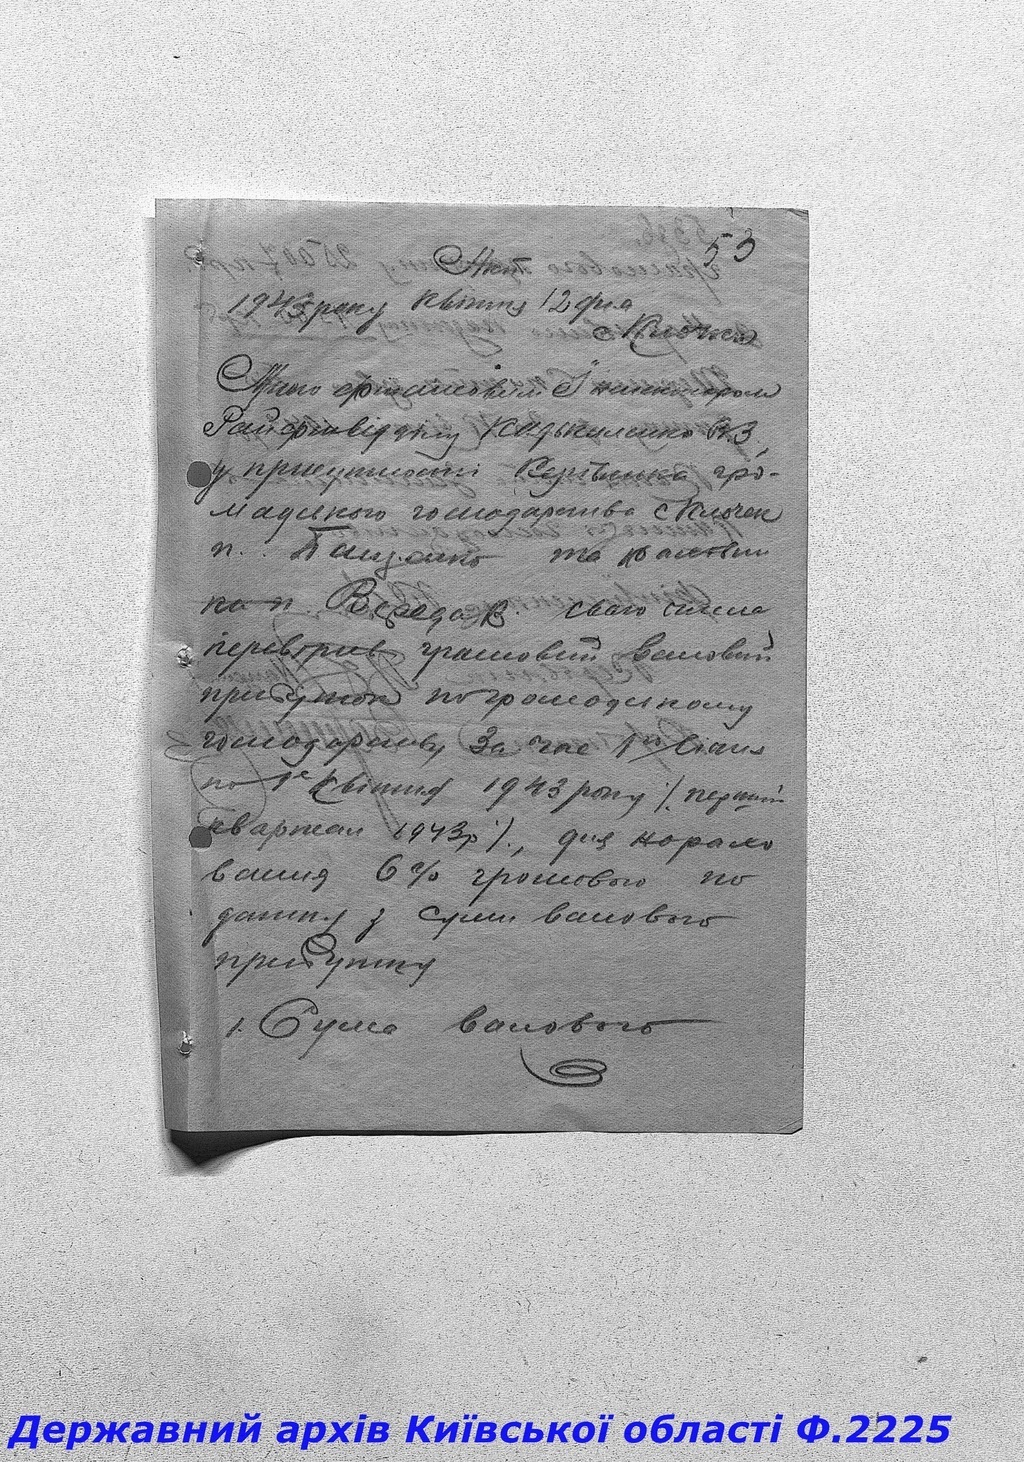 53
Акт
1943 року Квітня 12 дня
с Ключки
Мною фінансовим Інспектором
Райфінвідділу
у присутності Керівника гро-
мадського господарства с Ключки
п. та рахівни
ка п. Вереда В. свого числа
перевірив грошовий валовий
прибуток по громадському
господарству За час 1го Січня
по 1е Квітня 1943 року /. перший
квартал 1943р /., для нарахо
вання 6% грошового по
датку з суми валового
прибутку
1. Сума валового
Державний архів Київської області Ф.2225